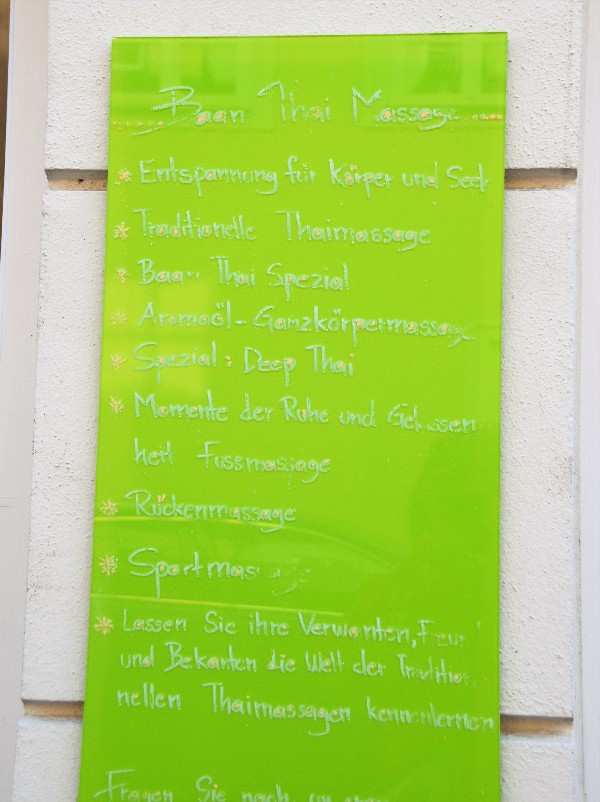 Baan Thai Massage
* Entspannung für Körper und Seele
* Traditionelle Thaimassage
* Baan Thai Spezial
* Aromaöl-Ganzkörpermassage
* Spezial: Deep Thai
* Momente der Ruhe und Gelassen
heit Fussmassage
* Rückenmassage
* Sportmassage
* Lassen Sie ihre Verwanten,
und Bekanten die Welt der Traditio
nellen Thaimassagen kennenlernen
Fragen Sie nach